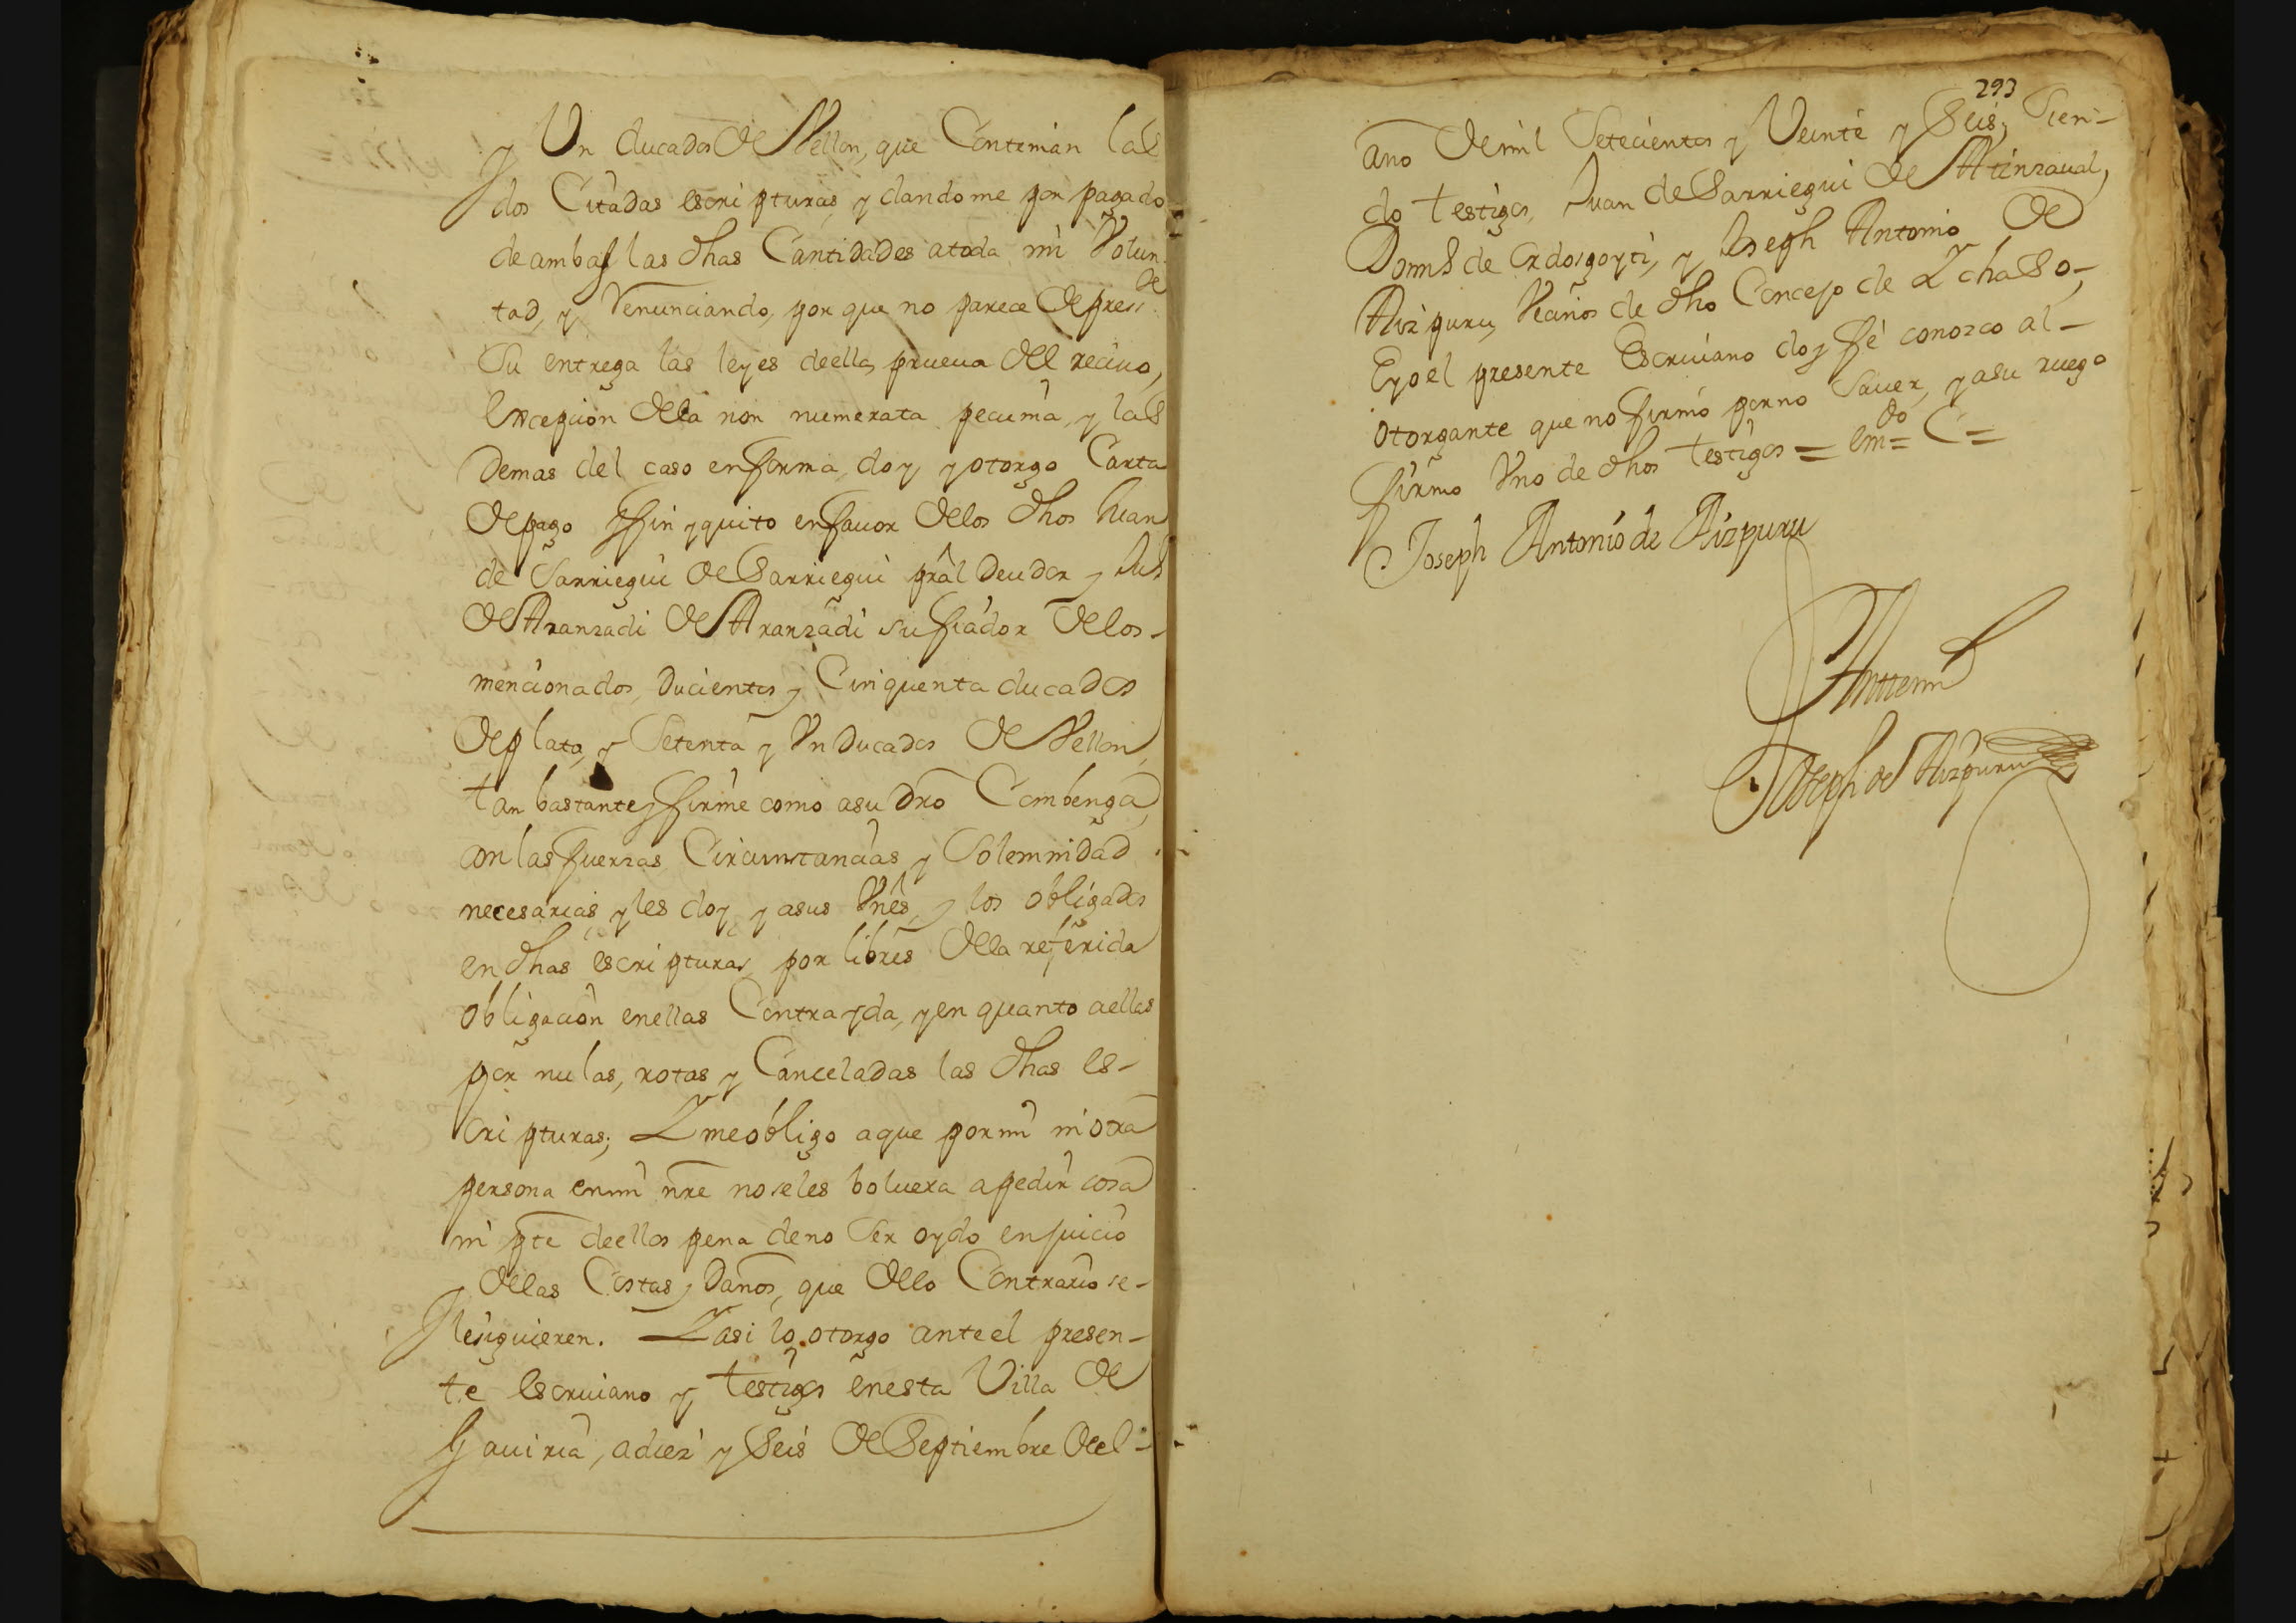 y Un ducados de Vellon, que Contenian las
dos Citadas escripturas, y dandome por pagado
de ambas las dhas Cantidades a toda mi Volun
tad, y Renunciando, por que no parece de pressᵗᵉ
Su entrega las leyes de ella, prueva del recivo,
excepcion dela non numerata pecunia, y las
Demas del caso en forma, doy y otorgo Carta
de pago y fin y quito en favor delos dhos Juan
de Sarriegui de Sarriegui prâl Deudor y
de Aranzadi de Aranzadi su fiador delos-
mencionados, Ducientos y Cinquenta ducados
de plata, y Setenta y Un Ducados de Vellon,
tan bastante y firme como a su dro Combenga,
con las fuerzas Circunstancias y Solemnidad
necesarias, y les doy y a sus Vnês, y los obligados
en dhas escripturas por libres dela referida
obligacion en ellas Contrayda, y en quanto a ellas
por nulas, rotas y Canceladas las dhas es-
cripturas; Y me obligo a que por mi ni otra
persona en mi nre no se les bolvera a pedir cosa
ni pte de ellos pena de no Ser oydo en juicio
y delas Costas y Daños, que delo Contrario se-
les siguieren. Y asi lo otorgo ante el presen-
te escrivano y testigos en esta Villa de
Gaviria, a diez y Seis de Septiembre del-
293
año de mil Setecientos y Veinte y Seis, Sien-
do testigos, Juan de Sarriegui de Atinzaval,
Doms de Ordosgoyti, y Joseph Antonio de
Aizpuru, Vecinos de dho Concejo de Ychaso-,
E yo el presente Escrivano doy fé conozco al-
otorgante que no firmó por no Saver, y a su ruego
firmo Uno de dhos testigos = emdo= C=
Joseph Antonio de Aizpuru
Anttemi
Joseph de Aizpuru